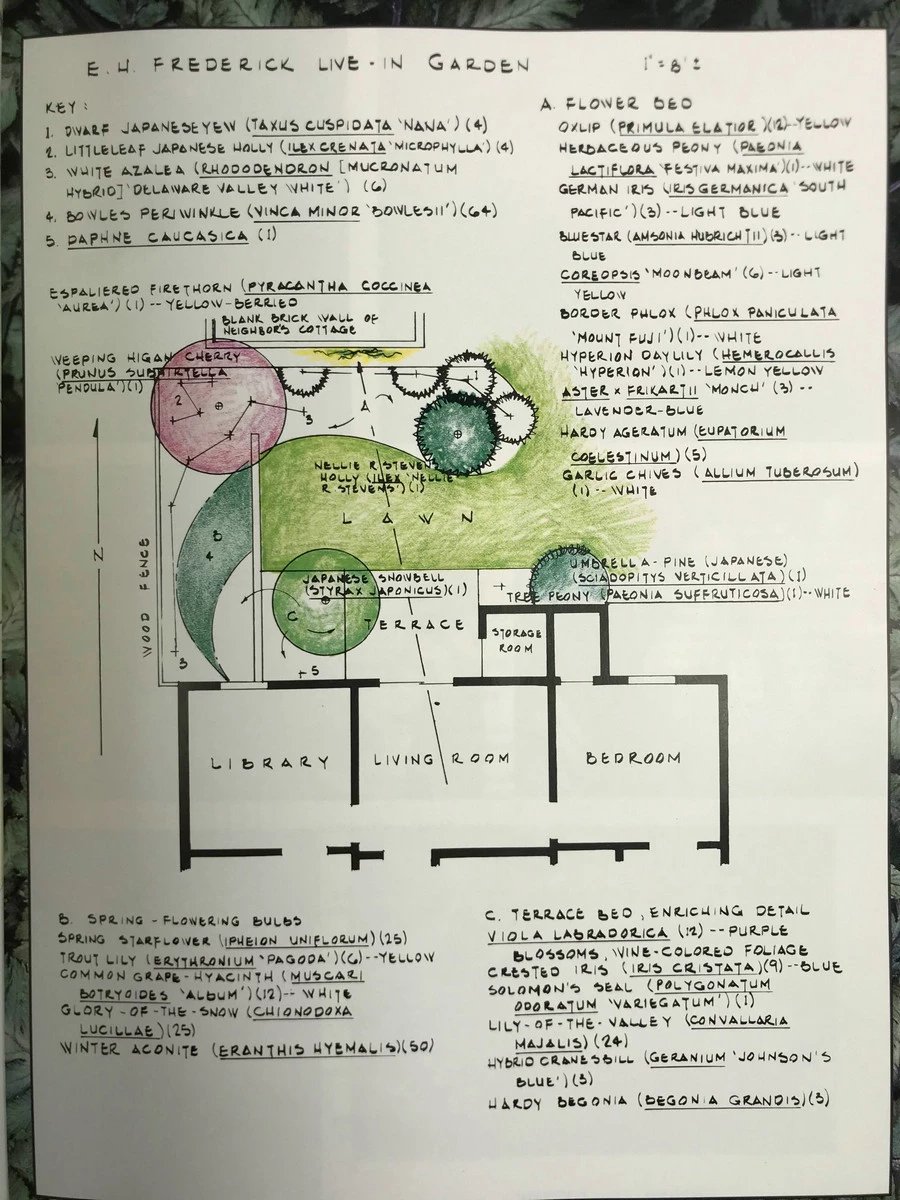 E.H. FREDERICK LIVE-IN GARDEN
1"=8'±
KEY:
1. DWARF JAPANESE YEW (TAXUS CUSPIDATA 'NANA') (4)
2. LITTLELEAF JAPANESE HOLLY (ILEX CRENATA 'MICROPHYLLA') (4)
3. WHITE AZALEA (RHODODENDRON [MUCRONATUM
HYBRID] 'DELAWARE VALLEY WHITE') (6)
4. BOWLES PERIWINKLE (VINCA MINOR 'BOWLESII') (64)
5. DAPHNE CAUCASICA (1)
ESPALIERED FIRETHORN (PYRACANTHA COCCINEA
'AUREA') (1) -- YELLOW-BERRIED
BLANK BRICK WALL OF
NEIGHBOR'S COTTAGE
WEEPING HIGAN CHERRY
(PRUNUS SUBHIRTELLA
PENDULA') (1)
A. FLOWER BED
OXLIP (PRIMULA ELATIOR) (12)--YELLOW
HERBACEOUS PEONY (PAEONIA
LACTIFLORA 'FESTIVA MAXIMA') (1)--WHITE
GERMAN IRIS (IRIS GERMANICA 'SOUTH
PACIFIC') (3)--LIGHT BLUE
BLUESTAR (AMSONIA HUBRICHTII) (3)--LIGHT
BLUE
COREOPSIS 'MOONBEAM' (6)--LIGHT
YELLOW
BORDER PHLOX (PHLOX PANICULATA
'MOUNT FUJI') (1)--WHITE
HYPERION DAYLILY (HEMEROCALLIS
'HYPERION') (1)--LEMON YELLOW
ASTER x FRIKARTII 'MONCH' (3) --
LAVENDER-BLUE
HARDY AGERATUM (EUPATORIUM
COELESTINUM) (5)
GARLIC CHIVES (ALLIUM TUBEROSUM)
(1) -- WHITE
1
2
3
A
NELLIE R STEVENS
HOLLY (ILEX 'NELLIE
R STEVENS') (1)
LAWN
N
WOOD FENCE
B
4
3
JAPANESE SNOWBELL
(STYRAX JAPONICUS) (1)
C
5
TERRACE
UMBRELLA-PINE (JAPANESE)
(SCIADOPITYS VERTICILLATA) (1)
TREE PEONY (PAEONIA SUFFRUTICOSA) (1)--WHITE
STORAGE
ROOM
LIBRARY
LIVING ROOM
BEDROOM
B. SPRING-FLOWERING BULBS
SPRING STARFLOWER (IPHEION UNIFLORUM) (25)
TROUT LILY (ERYTHRONIUM 'PAGODA') (6)--YELLOW
COMMON GRAPE-HYACINTH (MUSCARI
BOTRYOIDES 'ALBUM') (12)-- WHITE
GLORY-OF-THE-SNOW (CHIONODOXA
LUCILLAE) (25)
WINTER ACONITE (ERANTHIS HYEMALIS) (50)
C. TERRACE BED, ENRICHING DETAIL
VIOLA LABRADORICA (12) --PURPLE
BLOSSOMS, WINE-COLORED FOLIAGE
CRESTED IRIS (IRIS CRISTATA) (9)--BLUE
SOLOMON'S SEAL (POLYGONATUM
ODORATUM 'VARIEGATUM') (1)
LILY-OF-THE-VALLEY (CONVALLARIA
MAJALIS) (24)
HYBRID CRANESBILL (GERANIUM 'JOHNSON'S
BLUE') (3)
HARDY BEGONIA (BEGONIA GRANDIS) (3)